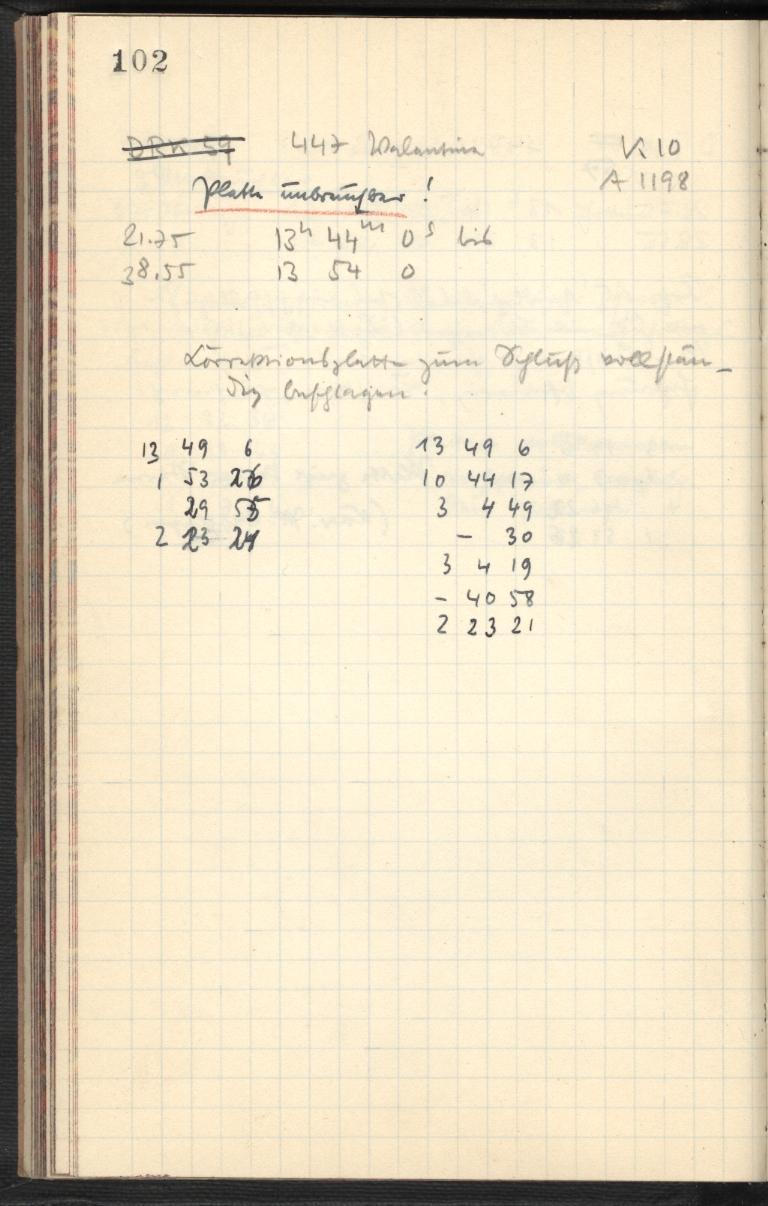 102
DRK 59 447 Valentina K 10
Platte unbrauchbar! A 1198
21.75 13h 44m 0s bis
38.55 13 54 0
Korrektionsplatte zum Schluß vollstän-
dig beschlagen.
13 49 6 13 49 6
1 53 26 10 44 17
29 55 3 4 49
2 23 21 - 30
3 4 19
- 40 58
2 23 21